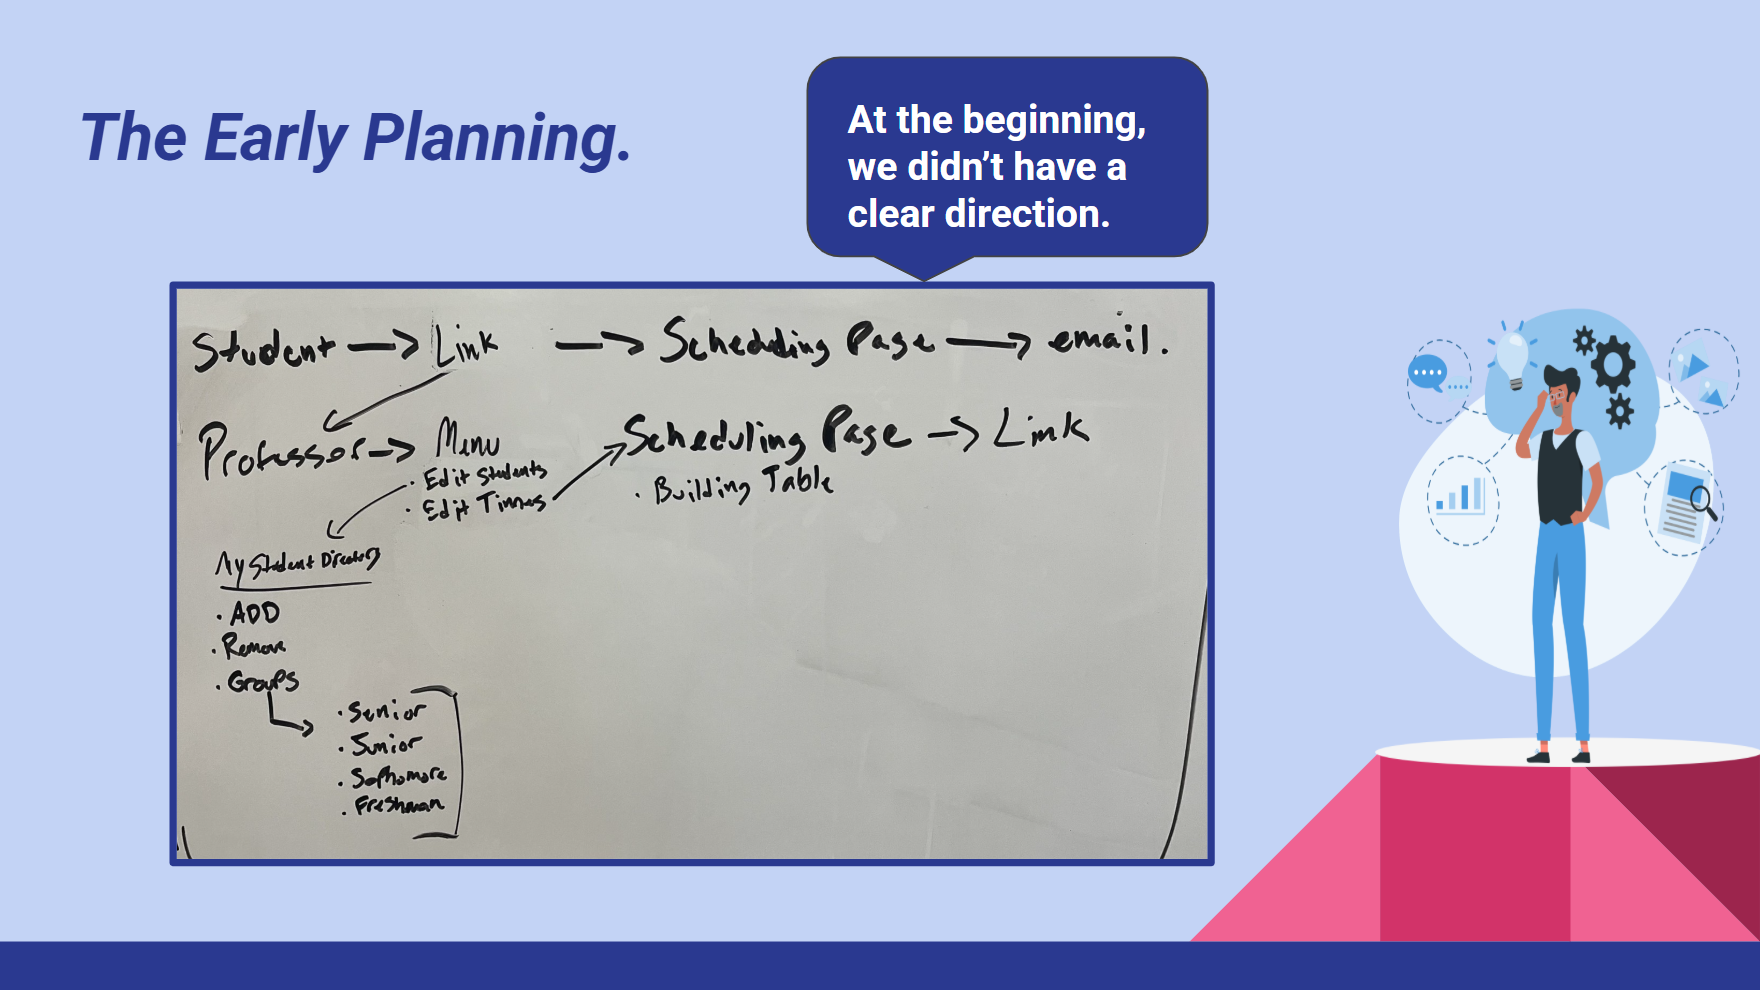 The Early Planning.
At the beginning,
we didn't have a
clear direction.
Student → Link → Scheduling Page → email.
Professor → Menu
· Edit Students
· Edit Times
Scheduling Page → Link
· Building Table
My Student Directory
· ADD
· Remove
· Groups
· Senior
· Junior
· Sophomore
· Freshman